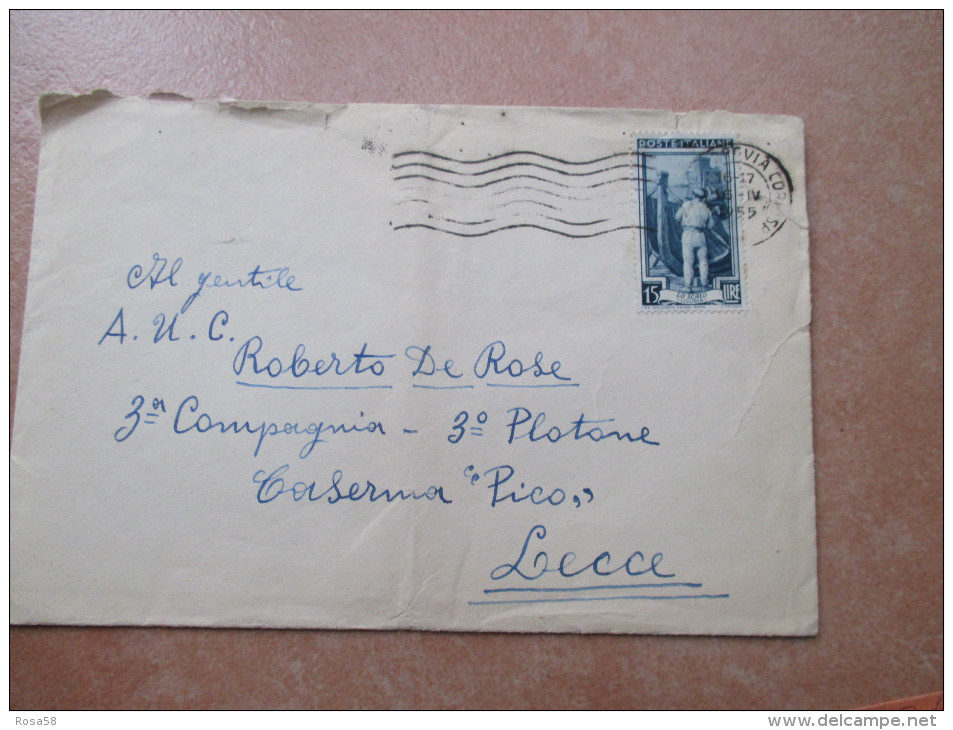 POSTE ITALIANE
16-17
IV
1955
15 LIRE
Al gentile
A. U. C.
Roberto De Rose
3ª Compagnia - 3º Plotone
Caserma "Pico„
Lecce
Rosa58
www.delcampe.net